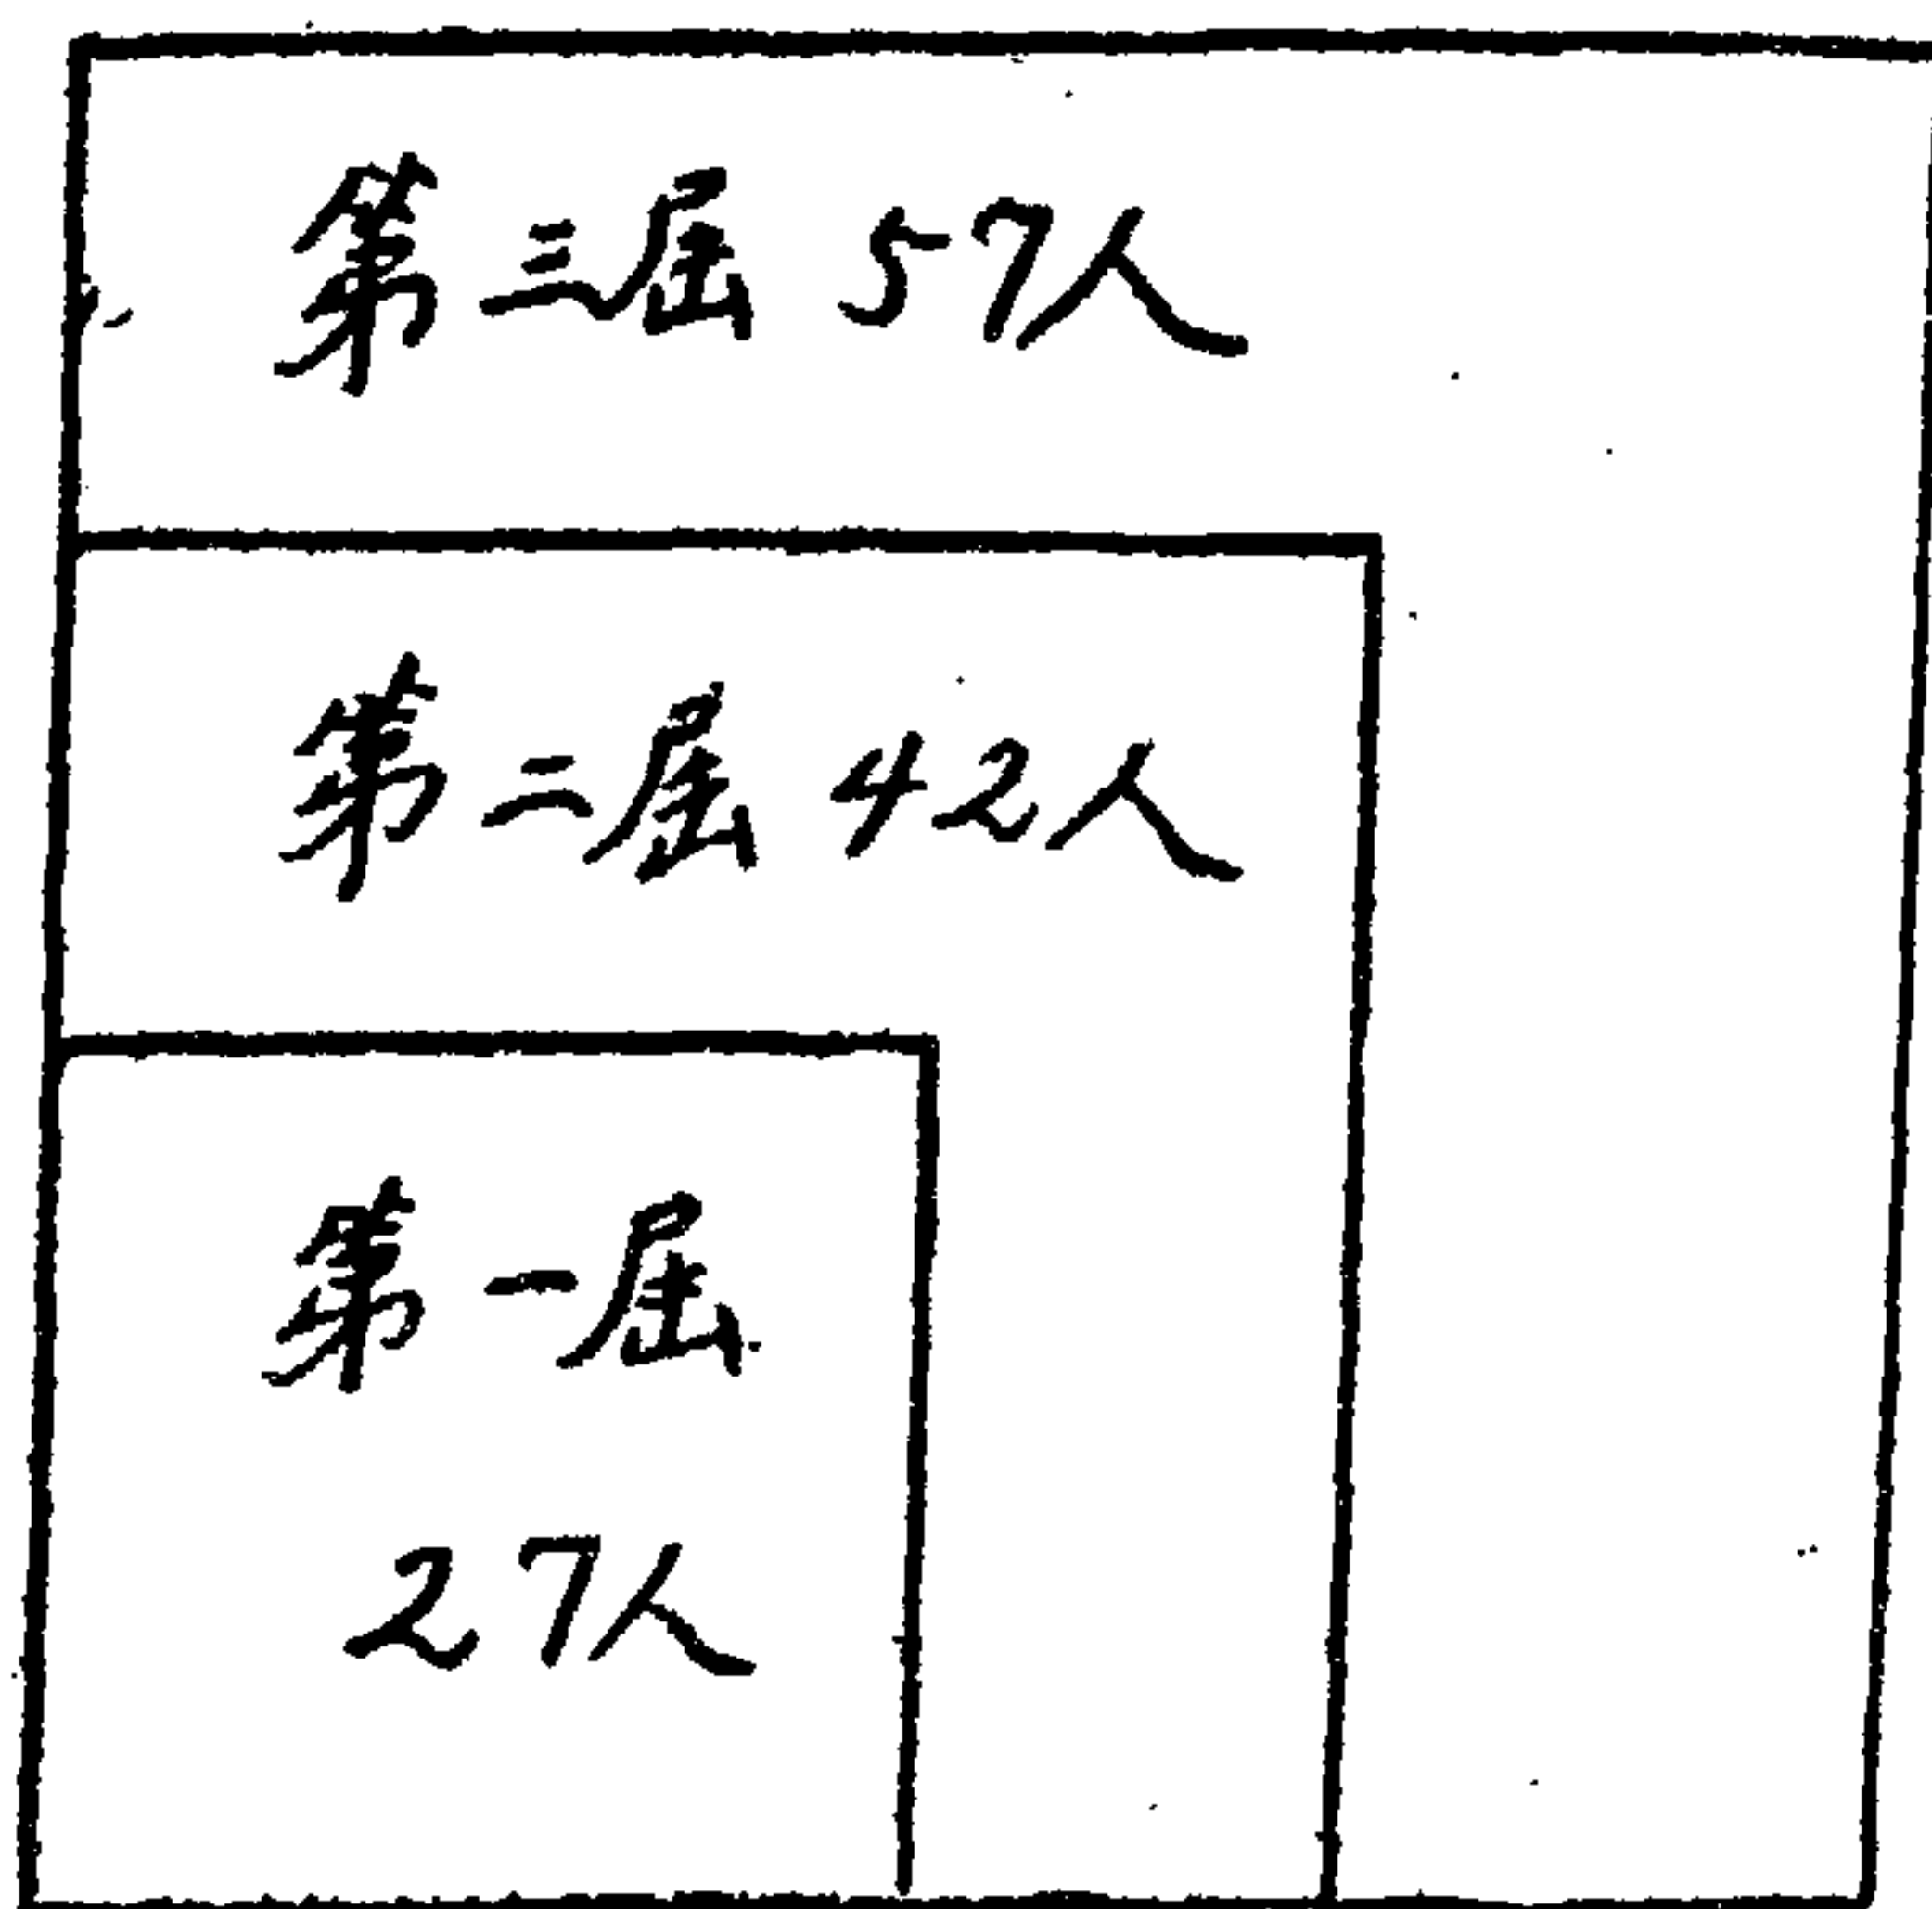 第三届 57人
第二届 42人
第一届
27人